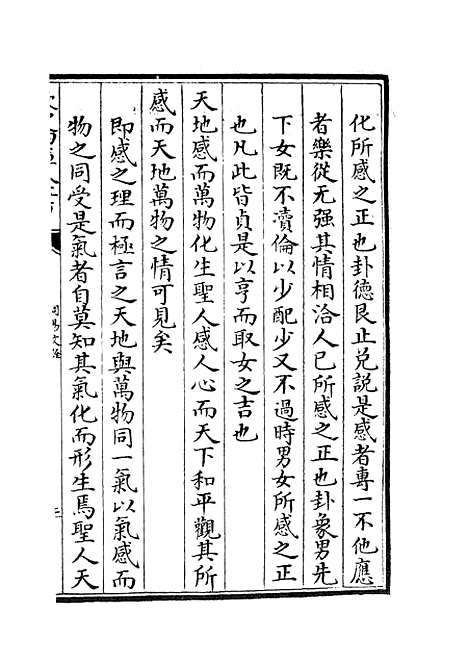 化所感之正也卦德艮止兑説是感者專一不他應
者樂從无强其情相洽人已所感之正也卦象男先
下女既不瀆倫以少配少又不過時男女所感之正
也凡此皆貞是以亨而取女之吉也
天地感而萬物化生聖人感人心而天下和平觀其所
感而天地萬物之情可見矣
即感之理而極言之天地與萬物同一氣以氣感而
物之同受是氣者自莫知其氣化而形生焉聖人天